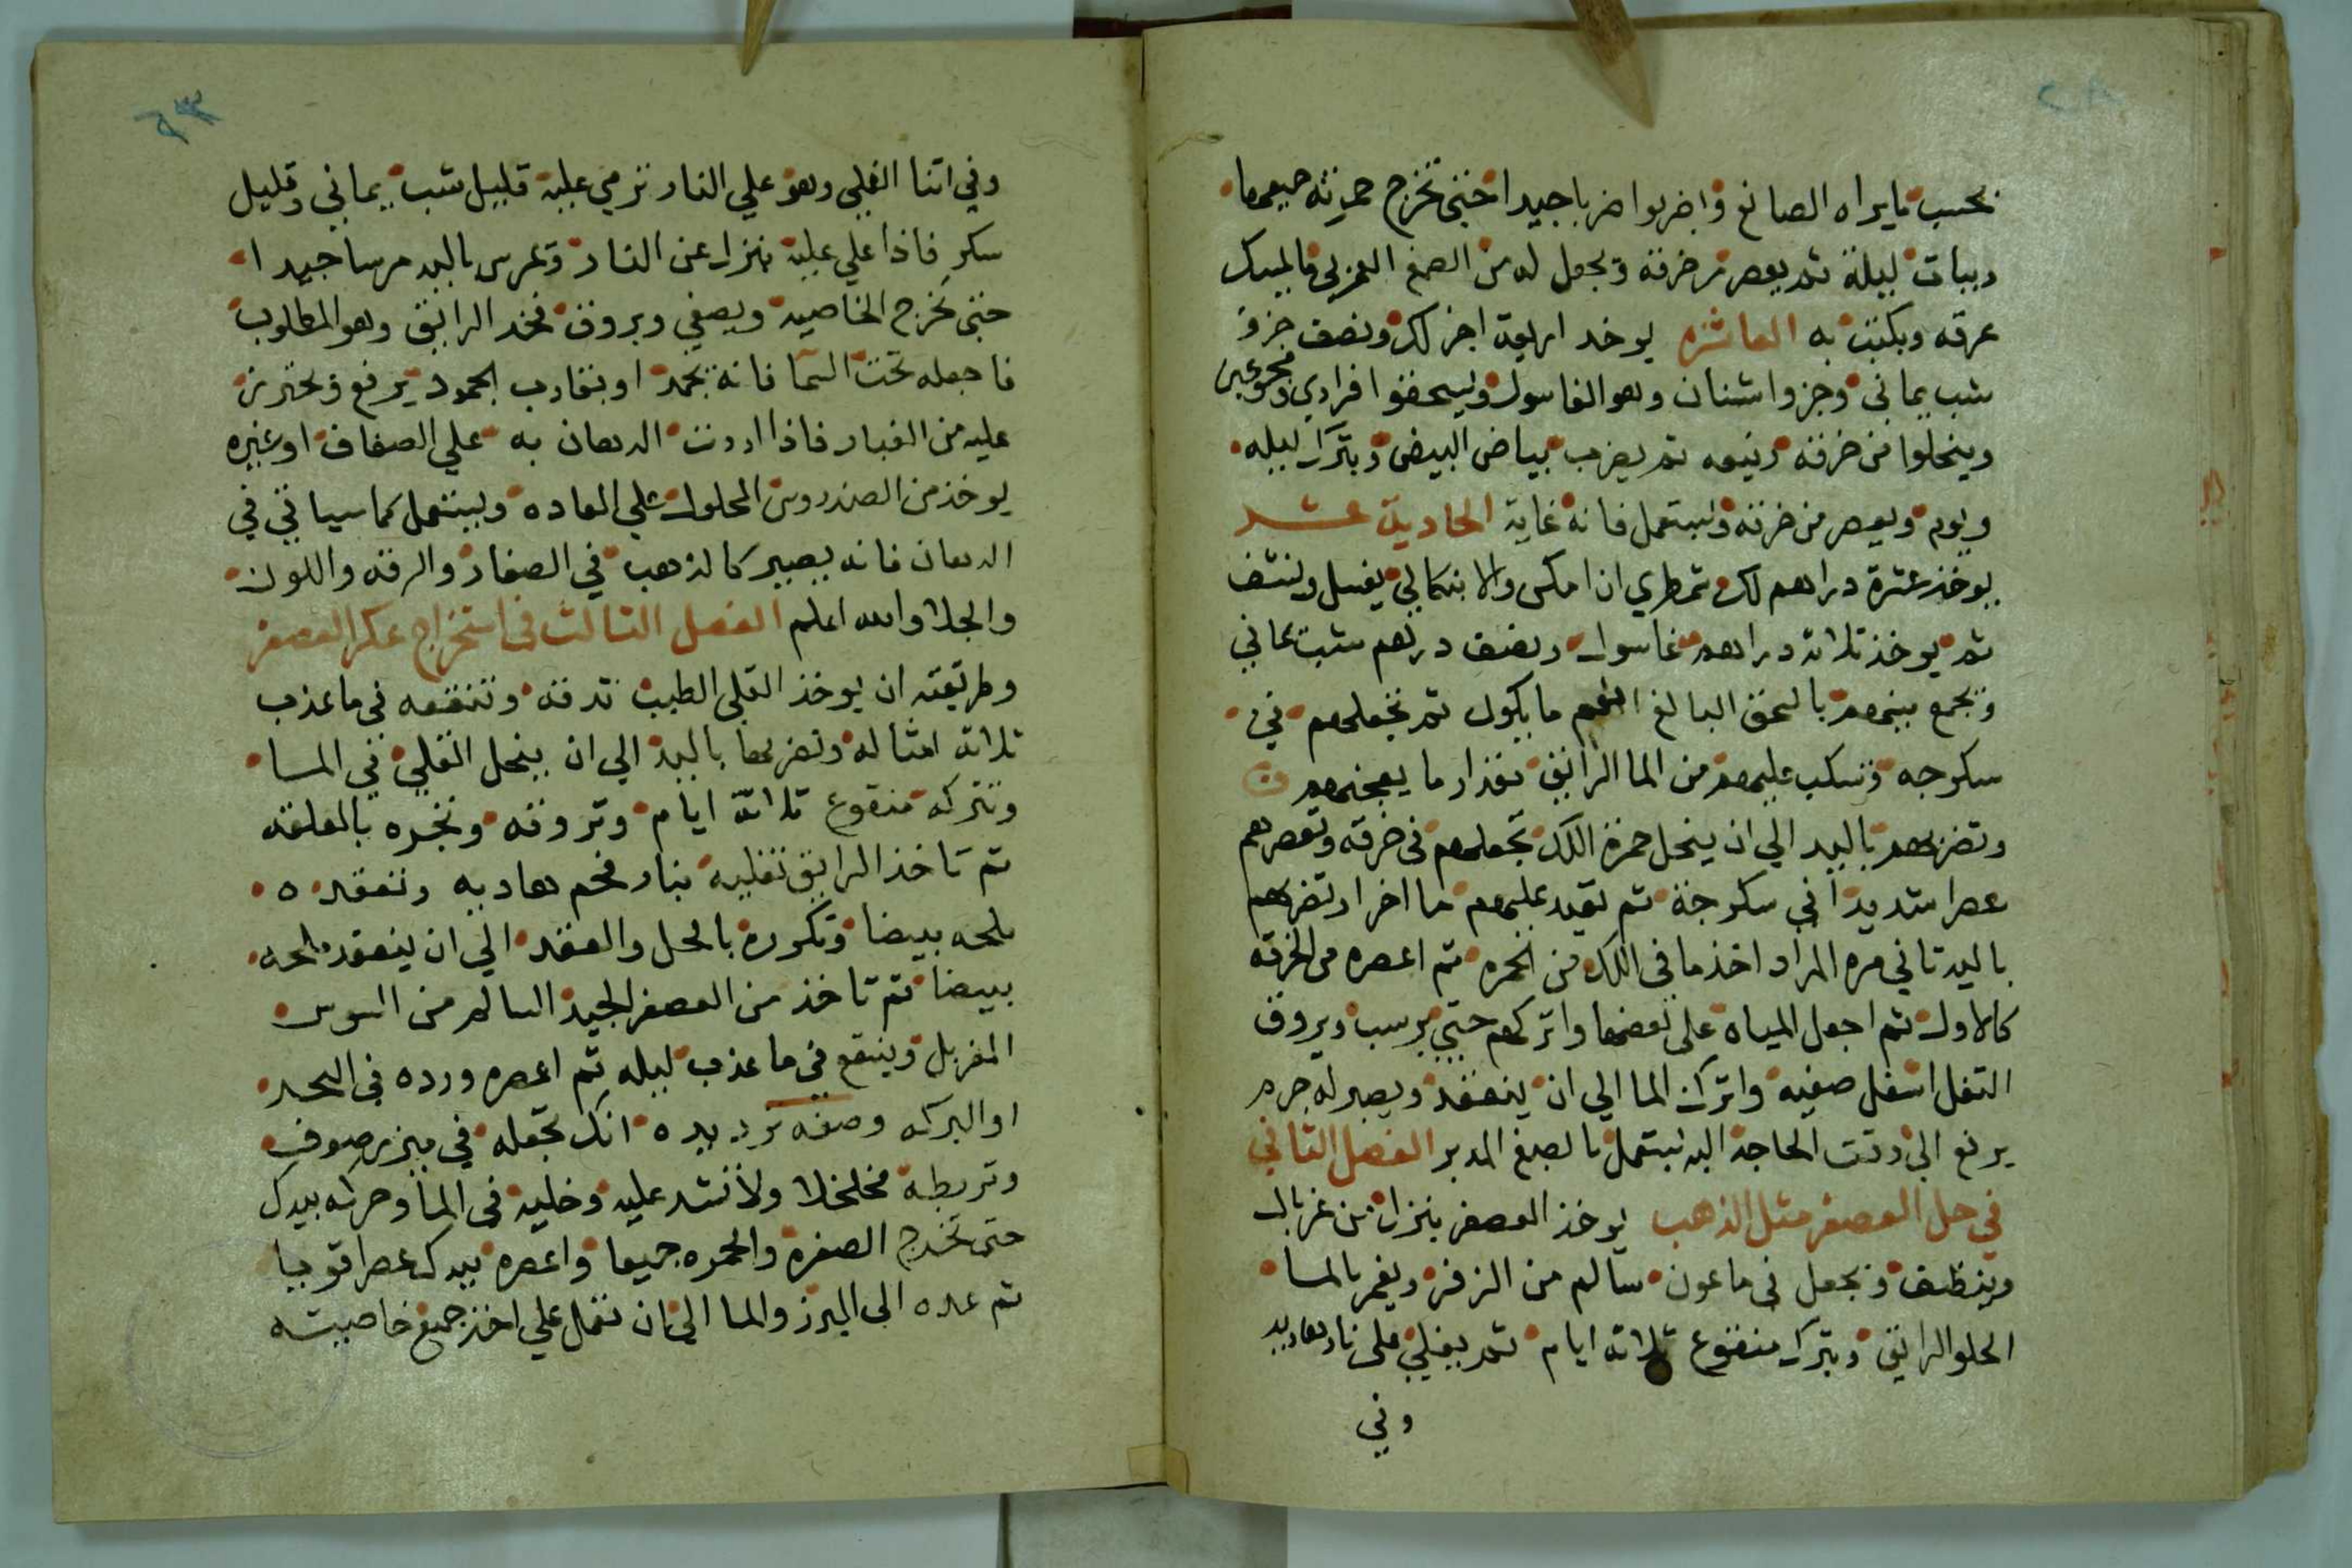 بحسب ما يراه الصانع واضربوا ضربا جيدا حتى تخرج حمرته جميعها
ويبات ليلة ثم يعصر من خرقه ويجعل له من الصمغ العربي ما يمسك
عرقه ويكتب به العاشره يوخد اربعة اجز لك ونصف جزؤ
شب يماني وجزو اشنان وهو الغاسول ويسحقوا افرادي ومجموعين
وينخلوا من خرقة رفيعه ثم يضرب ببياض البيض ويترك ليله
ويوم ويعصر من خرقه ويستعمل فانه غاية الحادية عشر
يوخذ عشرة دراهم لك تمطري ان امكن والا بنكالي يغسل وينشف
ثم يوخذ ثلاثه دراهم غاسول ونصف درهم شب يماني
وتجمع بينهم بالسحق البالغ انعم ما يكون ثم تجعلهم في
سكرجه وتسكب عليهم من الما الرايق مقدار ما يعجنهم
وتضربهم باليد الي ان ينحل حمرة اللك تجعلهم في خرقه وتعصرهم
عصرا شديدا في سكرجة ثم تعيد عليهم ما اخر وتضربهم
باليد تاني مره المراد اخذ ما في اللك من الحمره ثم اعصره من الخرقه
كالاول ثم اجعل المياه على بعضها واتركهم حتي يرسب ويروق
التفل اسفل صفيه واترك الما الي ان ينعقد ويصير له جرم
يرفع الي وقت الحاجة اليه يستعمل بالصمغ المدبر الفصل الثاني
في حل العصفر مثل الذهب يوخذ العصفر ينزل من غربال
وينظف ويجعل في ماعون سالم من الزفر ويغمر بالما
الحلو الرايق ويترك منقوع ثلاثه ايام ثم يغلي على نار هاديه
وفي
وفي اثنا الغلي وهو علي النار ترمي عليه قليل شب يماني وقليل
سكر فاذا غلي عليه ينزل عن النار ويمرس باليد مرسا جيدا
حتى تخرج الخاصيه ويصفي ويروق فخد الرايق وهو المطلوب
فاجعله تحت السما فانه يجمد او يقارب الجمود يرفع ويحترز
عليه من الغبار فاذا اردت الدهان به علي الصفاف او غيره
يوخذ من الصندروس المحلول علي العاده ويستعمل كما سياتي في
الدهان فانه يصير كالذهب في الصفار والرقه واللون
والجلا والله اعلم الفصل الثالث في استخراج عكر العصفر
وطريقته ان يوخذ القلي الطيب تدقه وتنقعه في ما عذب
ثلاثه امثاله وتضربها باليد الي ان ينحل القلي في الما
وتتركه منقوع ثلاثة ايام وتروقه وتجره بالعلقه
ثم تاخذ الرايق تغليه بنار فحم هاديه وتعقده
ملحه بيضا وتكرره بالحل والعقد الي ان ينعقد ملحه
بيضا ثم تاخذ من العصفر الجيد السالم من السوس
المغربل وينقع في ما عذب ليله ثم اعصره ورده في البحر
او البركه وصفة ترديده انك تجعله في ميزر صوف
وتربطه مخلخلا ولا تشد عليه وخليه في الما وحركه بيدك
حتى تخرج الصفره والحمره جميعا واعصره بيدك عصرا قويا
ثم عده الي الميزر والما الي ان تعمل علي اخذ جميع خاصيته